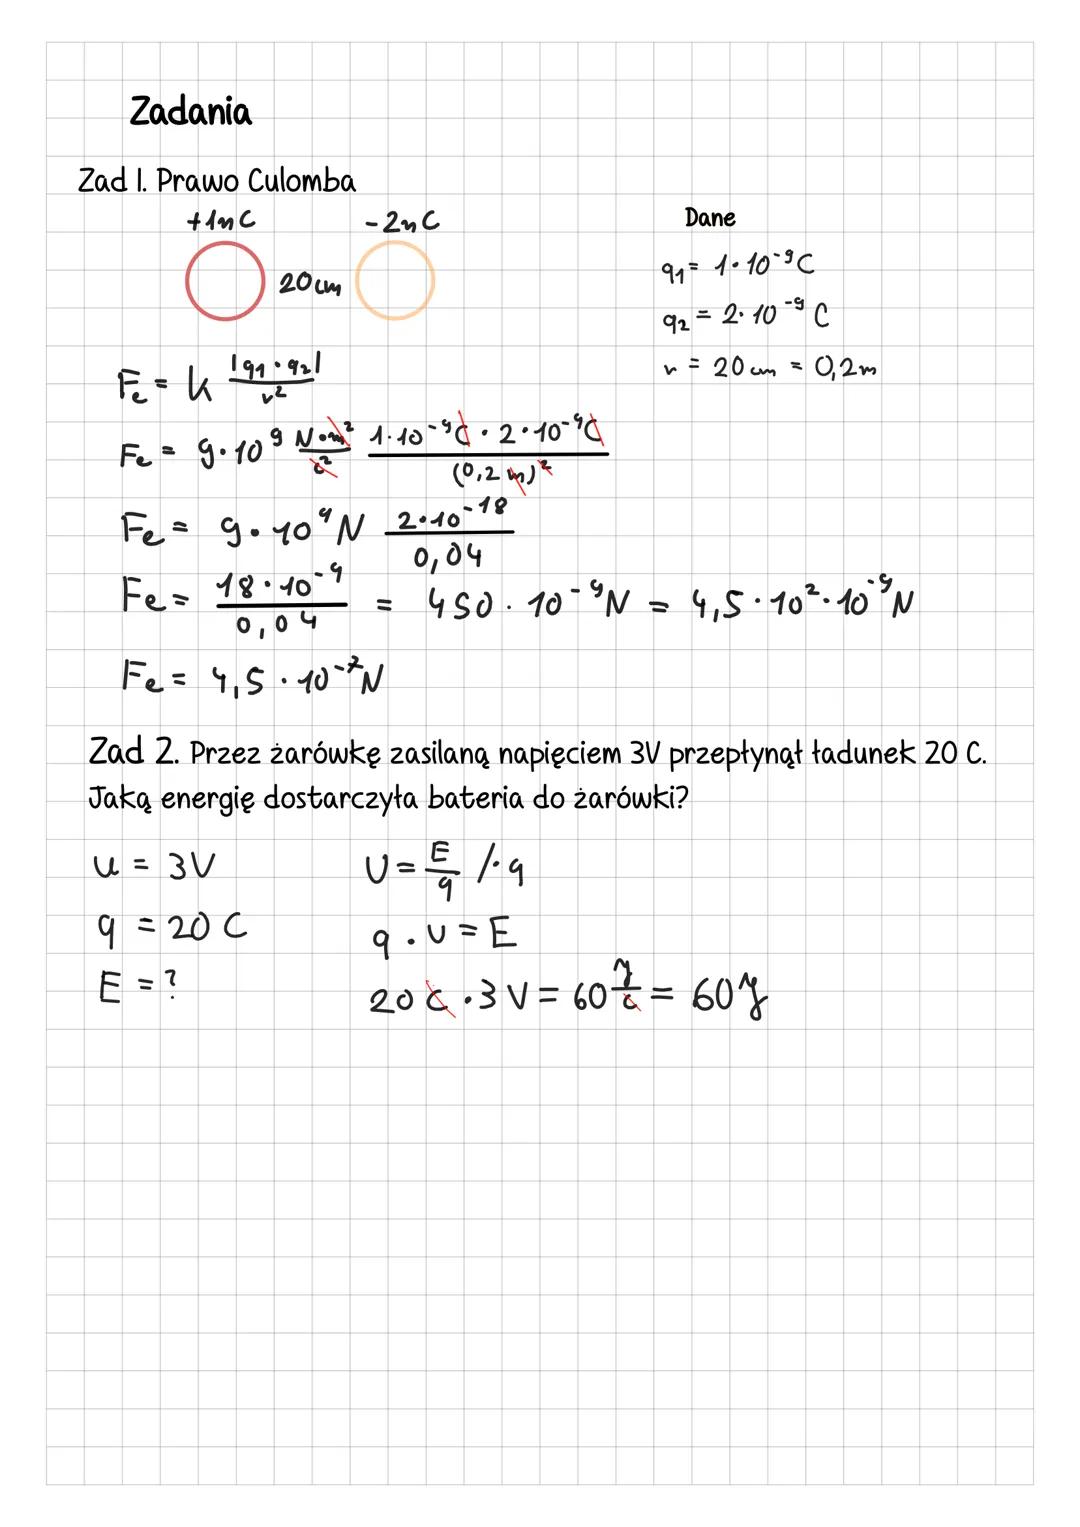 Zadania
Zad 1. Prawo Culomba
+1nC -2nC Dane
20cm
q₁ = 1·10⁻⁹C
q₂ = 2·10⁻⁹ C
r = 20cm = 0,2m
Fe = k |q₁·q₂| / r²
Fe = 9·10⁹ N·m²/C² 1·10⁻⁹C · 2·10⁻⁹C / (0,2 m)²
Fe = 9·10⁹N 2·10⁻¹⁸ / 0,04
Fe = 18·10⁻⁹ / 0,04 = 450·10⁻⁹N = 4,5·10²·10⁻⁹N
Fe = 4,5·10⁻⁷N
Zad 2. Przez żarówkę zasilaną napięciem 3V przepłynął ładunek 20 C.
Jaką energię dostarczyła bateria do żarówki?
U = 3V U = E/q /·q
q = 20 C q·U = E
E = ? 20 C·3V = 60 J/C = 60J